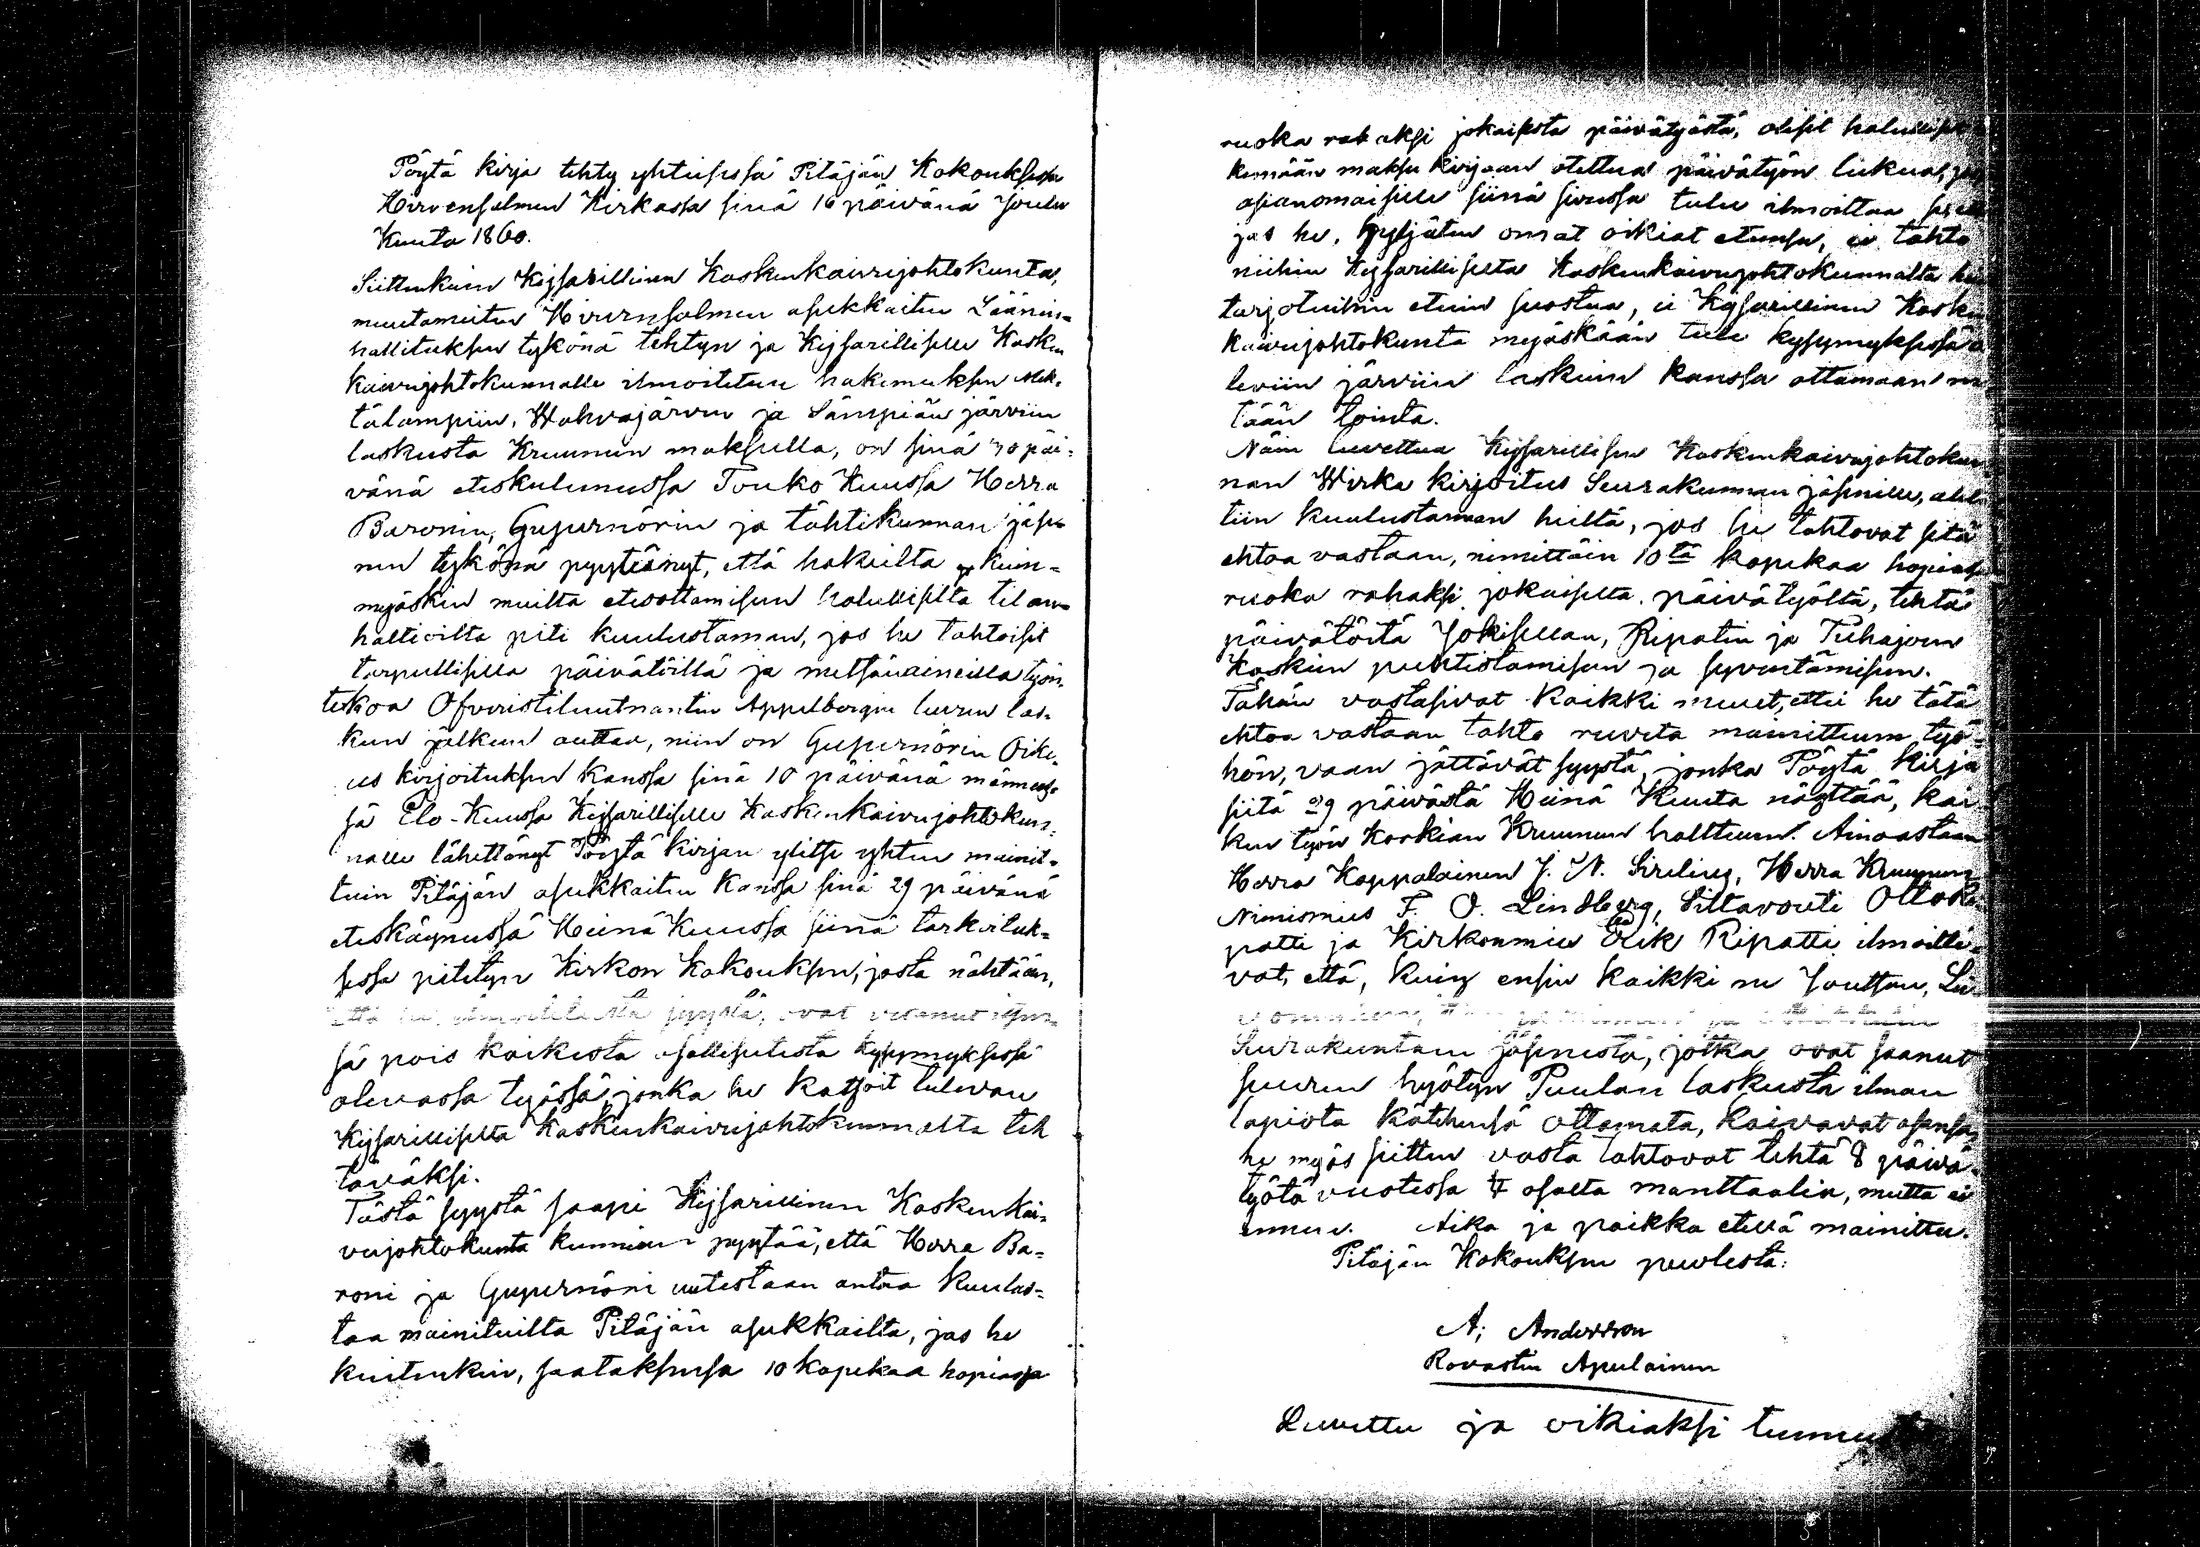 Pöytä kirja tehty yhteisessä Pitäjän Kokouksessa
Hirvensalmen Kirkossa sinä 16 päivänä Joulu
Kuuta 1860.
Sittenkuin Kejsarillinen Koskenkaivujohtokunta,
muutameitten Hirvensalmen asukkaitten Läänin-
hallituksen tykönä tehtyn ja Kejsarilliselle Kosken
kaivujohtokunnalle ilmoitetun hakemuksen
tälampiin, Wahvajärven ja Sämpiän järviin
laskusta Kruunun maksulla, on sinä 30 päi-
vänä eteskulunessa Touko Kuussa Herra
Baronin, Gupernörin ja tähtikunnan jäse-
nen tykönä pyytänyt, että hakeilta kuin-
myöskin muilta etuottamisen halullisilta tilan-
haltioilta piti kuulustaman, jos he tahtoisit
tarpellisilla päivätöillä ja metsänaineilla työn-
tekoa Öfveristiluutnantin Appelbergin luvun las-
kun jälkeen auttaa, niin on Gupernörin Oike-
us kirjoituksen kanssa sinä 10 päivänä männees-
sä Elo-Kuussa Kejsarilliselle Koskenkaivujohtokun-
nalle lähettänyt Pöytä kirjan ylitse yhten mainit-
tuin Pitäjän asukkaitten kanssa sinä 29 päivänä
eteskäynessä Heinä Kuussa siinä tarkoituk-
sessa pidetyn Kirkon Kokouksen, josta nähdään,
että he, syystä, ovat vetänut itsen-
sä pois kaikesta osallisutesta kysymyksessä
olevassa työssä, jonka he katsoit tulevan
Kejsarilliselta Koskenkaivujohtokunnalta teh
täväksi.
Tästä syystä saapi Kejsarillinen Koskenkai-
vujohtokunta kunnian pyytää, että Herra Ba-
roni ja Gupernöri uutestaan antaa kuulus-
taa mainituilta Pitäjän asukkailta, jos he
kuitenkin, saataksensa 10 kopekaa hopiassa
ruoka rahaksi jokaisesta päivätyöstä, olisit halulliset
kemään maksu kirjaan otettua päivätyön lukua,
asianomaisille siinä sivussa tulee ilmoittaa,
jos he, hyljäten omat oikiat etunsa, ei tahto
niihin Kejsarilliselta Koskenkaivujohtokunnalta
tarjotuihin etuin suostua, ei Kejsarillinen Kosken
kaivujohtokunta myöskään tule kysymyksessä o
leviin järviin laskuin kanssa ottamaan mi
tään tointa.
Näin luvettua Kejsarillisen Koskenkaivujohtokun
nan Wirka kirjoitus Seurakunnan jäsenille,
tiin kuulustaman heiltä, jos he tahtovat sitä
ehtoa vastaan, nimittäin 10tä kopekaa hopiassa
ruoka rahaksi jokaiselta päivätyöltä, tehtä
päivätöitä Jokisillan, Ripatin ja Tuhajoen
Koskien puhtistamisen ja syventämisen.
Tähän vastasivat kaikki muut, ettei he tätä
ehtoa vastaan tahto ruveta mainittuun työ-
hön, vaan jättävät syystä, jonka Pöytä kirja
siitä 29 päivästä Heinä Kuuta näyttää, kai
ken työn Korkian Kruunun halttuun. Ainoastaan
Herra Kappalainen J. N. Sireling, Herra Kruunun
Nimismies F. O. Lindberg, Siltavouti Otto Ri-
patti ja Kirkonmies Erik Ripatti ilmoitti-
vat, että, kuin ensin kaikki ne Joutsan,
Seurakuntain jäsenistä, jotka ovat saanut
suuren hyötyn Puulan laskusta ilman
lapiota kätehensä ottamata, kaivavat osansa,
he myös siitten vasta tahtovat tehtä 8 päivä-
työtä vuotessa ¼ osalta manttaalia, mutta ei
ennen. Aika ja paikka etellä mainittu.
Pitäjän Kokouksen puolesta:
A; Andersson
Rovastin Apulainen
Luvettu ja oikiaksi tunnu